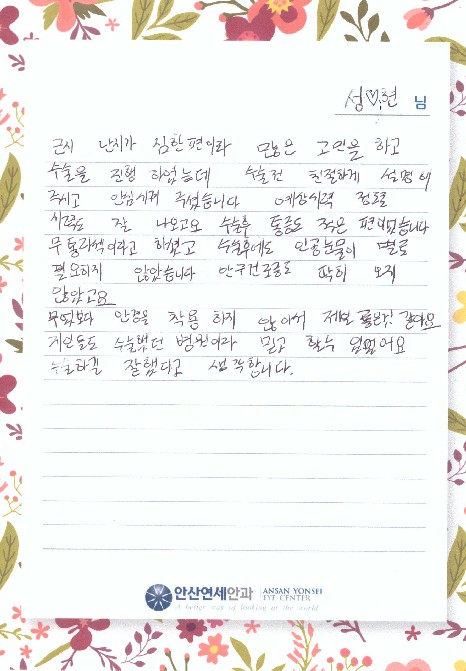 성♡현 님
근시 난시가 심한편이라 많은 고민을 하고
수술을 진행 하였는데 수술전 친절하게 설명해
주시고 안심시켜 주셨습니다 예상시력 정도로
시력도 잘 나오고요 수술후 통증도 적은 편이였습니다
무통라섹이라고 하셨고 수술후에도 인공눈물이 별로
필요하지 않았습니다 안구건조증도 딱히 오지
않았고요
무엇보다 안경을 착용 하지 않아서 제일 좋은것 같아요
지인들도 수술했던 병원이라 믿고 할수 있었어요
수술하길 잘했다고 생각합니다.
안산연세안과 ANSAN YONSEI
EYE CENTER
A better way of looking at the world